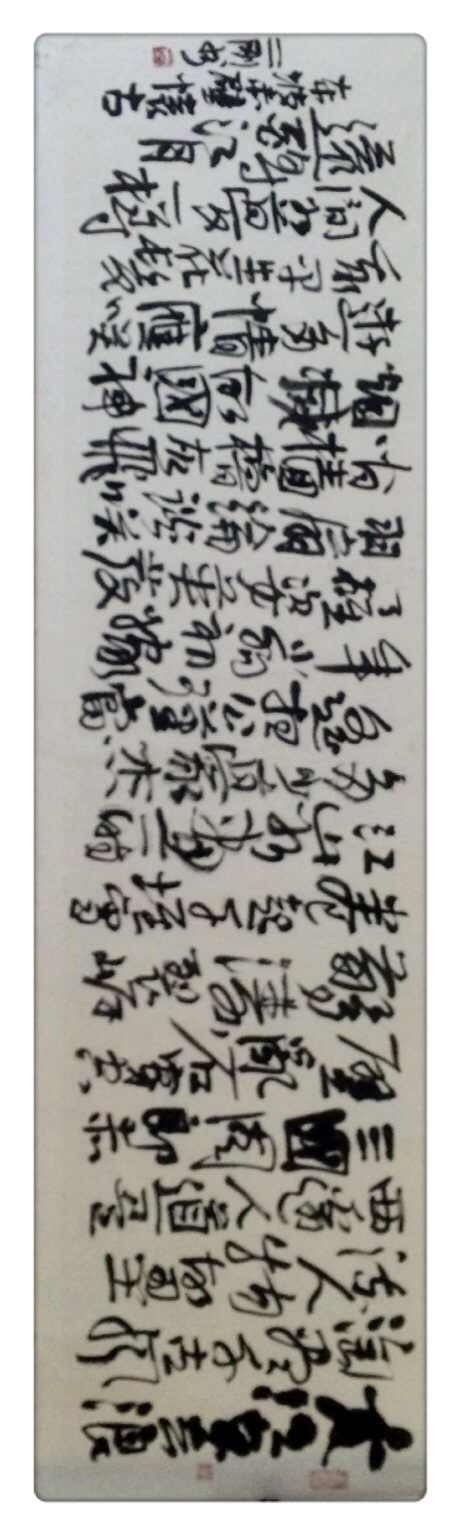 大江东去浪
淘尽千古风
流人物故垒
西邊人道是
三國周郎赤
壁亂石穿空
驚濤裂岸
卷起千堆雪
江山如畫一時
多少豪杰
遥想公瑾當
年小喬初嫁
了雄姿英發
羽扇綸談咲
间檣櫓灰飛
烟滅故國神
遊多情應咲
我早生花髮
人间如夢一樽
還酹江月
东坡赤壁懷古
一刚书